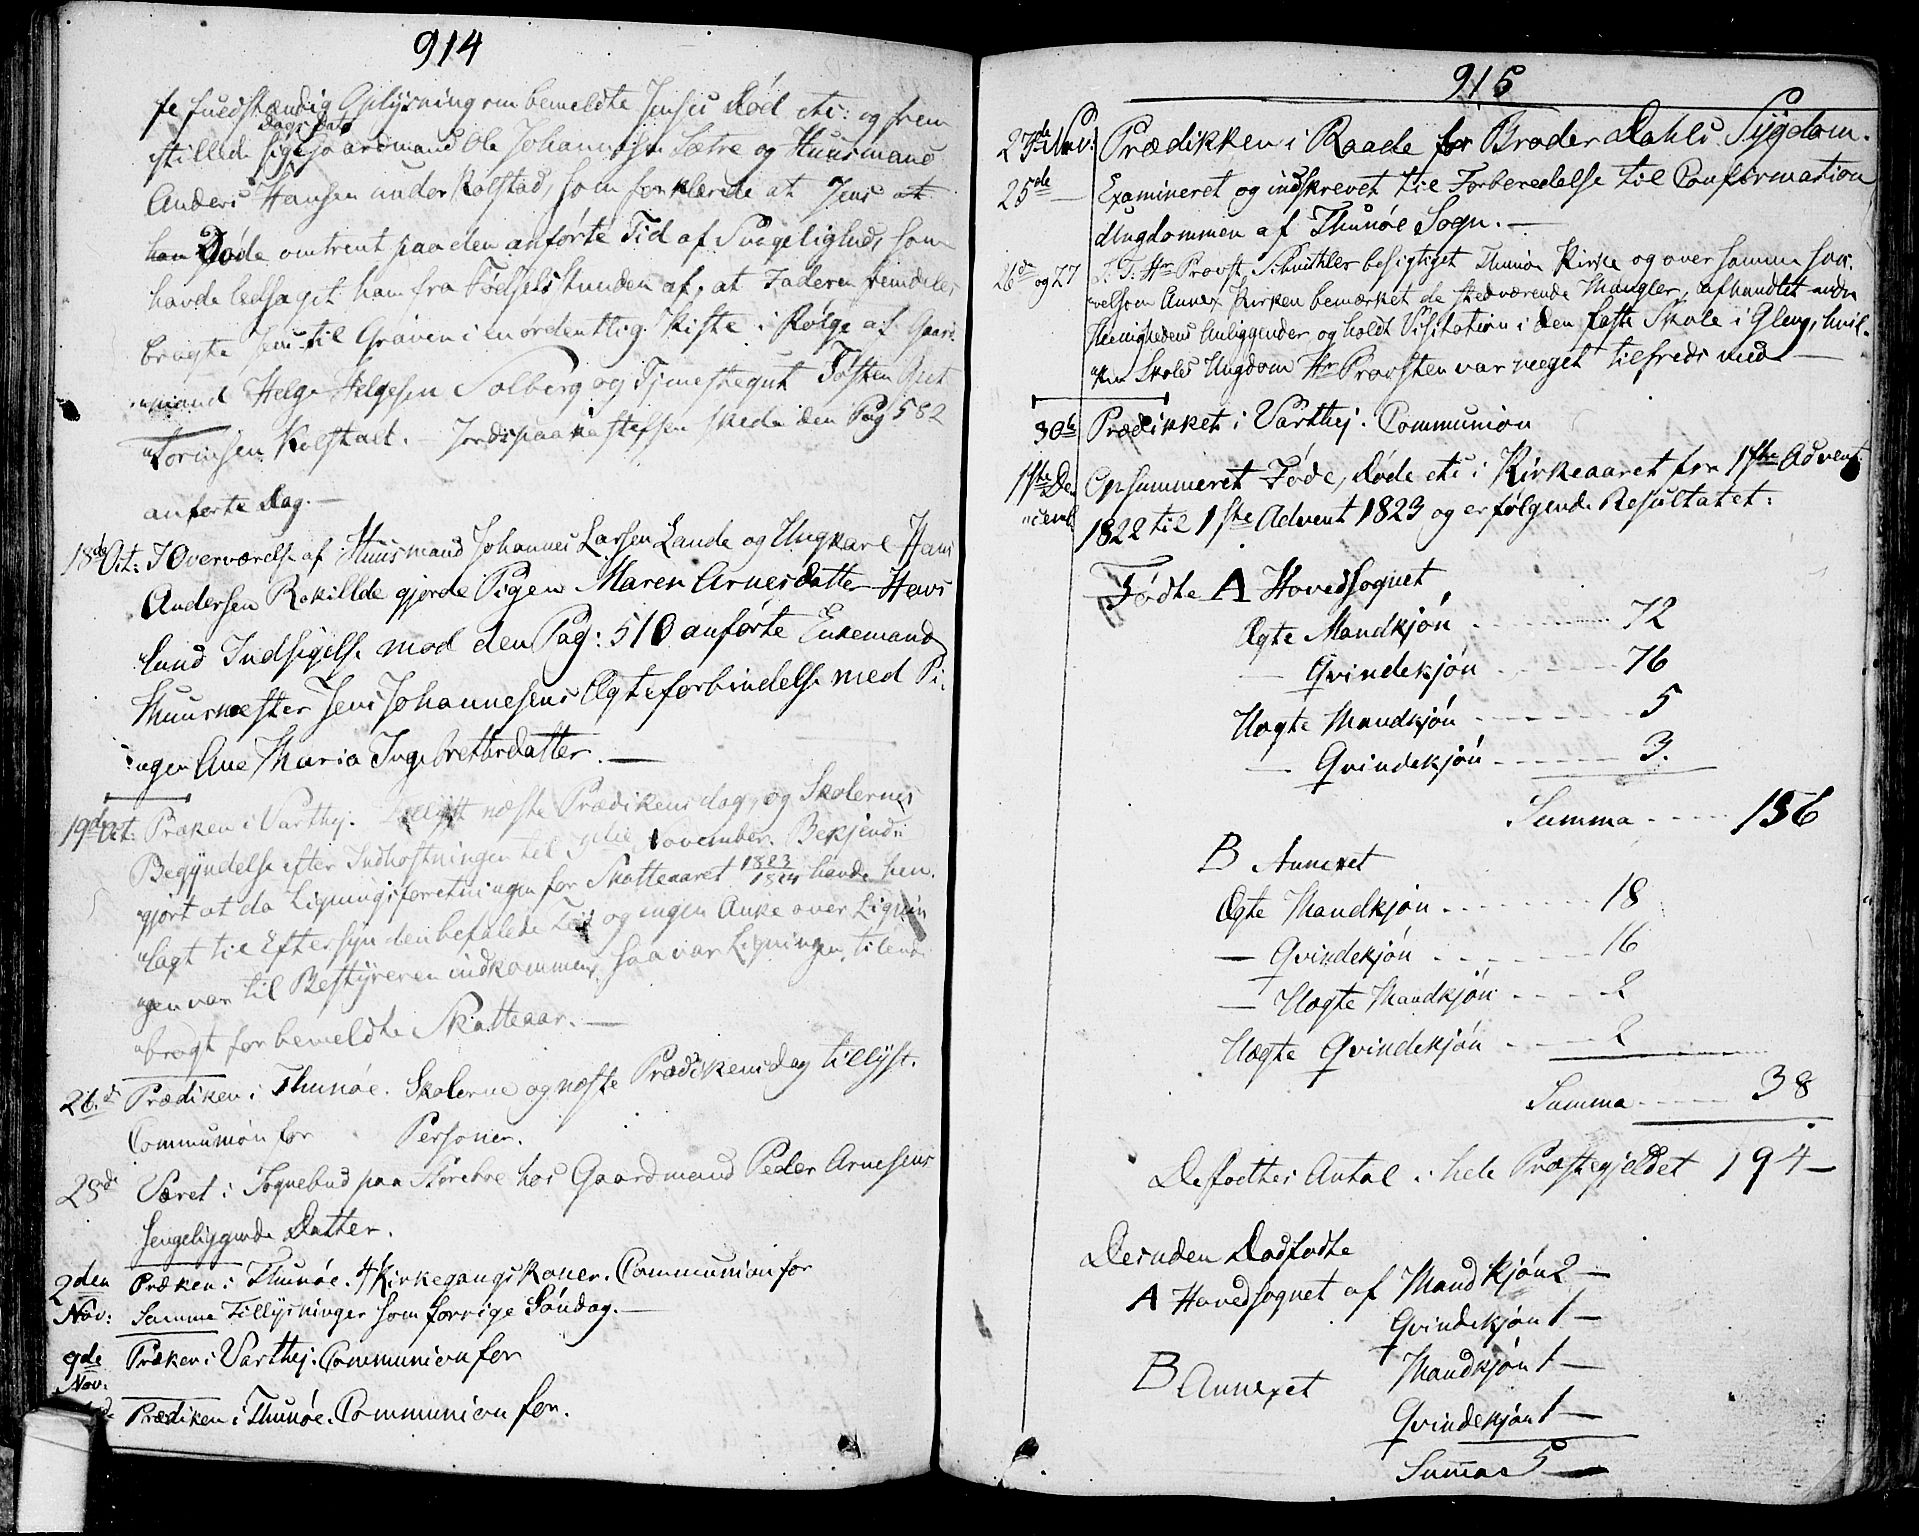 914
fuldstændig Oplysning om bemeldte Jenses Død etc: og frem
Dags Dato
stillede sig Gaardmand Ole Johannesen Sætre og Huusmand
Anders Hansen under Kolstad, som forklarede at Jens at
han Døde omtrent paa den anførte Tid af Svagelighed, som
havde ledsaget ham fra Fødsels Stunden af, at Faderen
bragte Jens til Graven i en ordentlig Kiste i Følge af Gaard-
mand Helge Helgesen Solberg og Tjenestegut Tosten
Torinsen Kolstad. Jordspaakastelsen skede den Pag 582
anførte Dag. —
18de Oct: I Overværelse af Huusmand Johannes Larsen Lande og Ungkarl Hans
Andersen Rokillde gjorde Pigen Maren Arnesdatter Havs
lund Indsigelse mod den Pag: 510 anførte Enkemand
Huusmester Jens Johannesens Ægteforbindelse med Pi-
gen Ane Maria Ingebretsdatter. —
19de Oct: Præken i Varthej. Tillyst næste Prædikensdag og Skolernes
Begyndelse efter Indhøstningen til 3die November. Bekjendt-
gjørt at da Ligningsforretningen for Skatteaaret 1823/1824 havde hen-
lagt til Eftersyn den befalede Tid og ingen Anke over Lignin
gen var til Bestyreren indkommen, saa var Ligningen tilende
bragt for bemeldte Skatteaar. —
26.d Prædiken i Thunøe. Skolerne og næste Prædikensdag tillyst.
Communion for Personer.
28de Været i Sognebud paa Storeboe hos Gaardmand Peder Arnesens
sengeliggende Datter.
2den Præken i Thunøe. 4 Kirkegangs Koner. Communion for
Nov: Samme Tillysninger som forrige Søndag. —
9de Præken i Varthej. Communion for
Nov.
Prædiken i Thunøe. Communion for.
915
23de Nov: Prædikken i Raade for Broder Dahls Sygdom.
25de — Examineret og indskrevet til Forberedelse til Confirmation
Ungdommen af Thunøe Sogn. —
26de og 27 S. T. Hr Provst besigtiget Thunøe Kirke og over samme saa-
velsom Annex Kirken bemærket de stedværende Mangler, afhandlet andre
Menighedens Anliggender og holdt Visitation i den faste Skole i Gleng, hvil-
ken Skoles Ungdom Hr Provsten var meget tilfreds med —
30te Prædikket i Varthej. Communion
1ste De Opsummeret Føde, Døde etc i Kirkeaaret fra 1ste Advent
cemb. 1822 til 1ste Advent 1823 og er følgende Resultatet:
Fødte A Hovedsognet
Ægte Mandkjön . . . . 72
— Qvindekjön . . . . 76
Uægte Mandkjön . . . . 5
— Qvindekjön . . . . 3.
Summa . . . . 156
B Annexet
Ægte Mandkjön . . . . 18
— Qvindekjön . . . . 16
— Uægte Mandkjön . . . . 2
Uægte Qvindekjön . . . . 2
Summa . . . . 38
De fødtes Antal i hele Præstegjeldet 194 —
Desuden Dødfødte
A Hovedsognet af Mandkjön 2 —
Qvindekjön 1 —
B Annexet Mandkjön 1 —
Qvindekjön 1 —
Summa 5 —